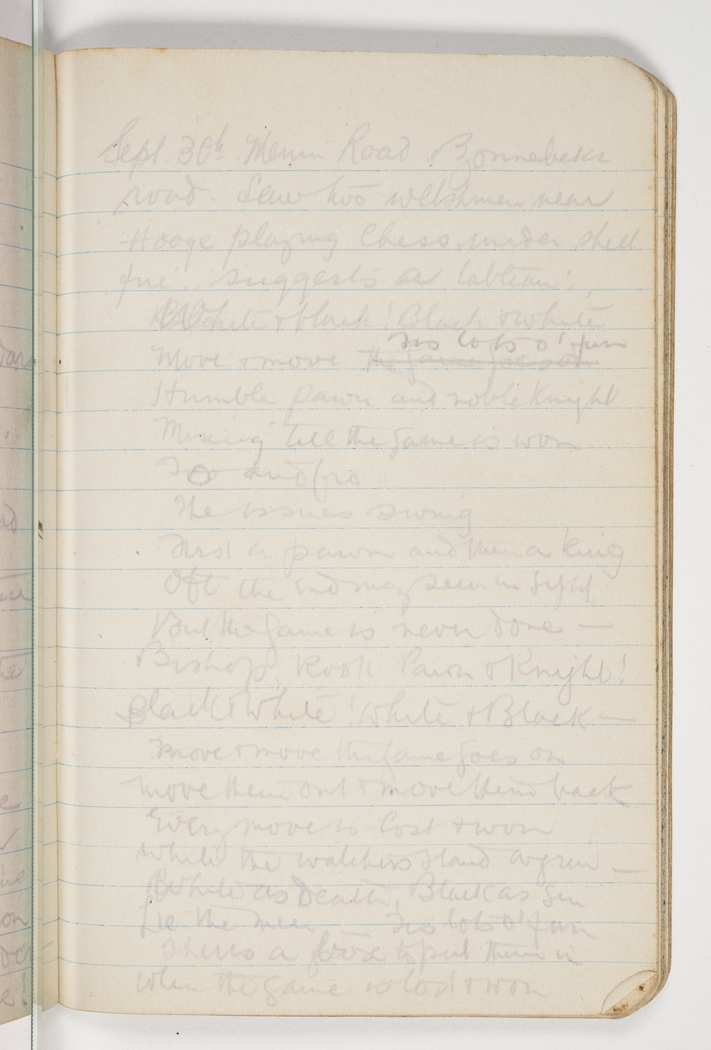 Sept. 30th Menin Road & Zonnebeke
road. Saw two Welshmen near
Hooge playing Chess under shell
fire. Suggests a tableau:
White & black! Black & white
'Tis lots o' fun
Move & move the game goes on
Humble pawn and noble Knight
Mixing till the Game is won
To and fro
The issues swing
First a pawn and then a King
Oft the End may seem in Sight,
But the Game is never done —
Bishop, Rook Pawn & Knight!
Black & White! White & Black —
Move & move the game goes on
Move them out & move them back
Every move is lost & won
While the watchers stand agrin —
White as Death, Black as Sin
Lie the men 'Tis lots o' fun
There's a box to put them in
When the Game is lost & won